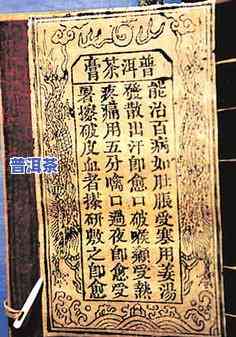 普洱茶膏
能治百病如肚脹受寒用姜湯
發散出汗即愈口破喉顙受熱
疼痛用五分噙口過夜即愈受
暑擦破皮血者搽研敷之即愈
普洱茶